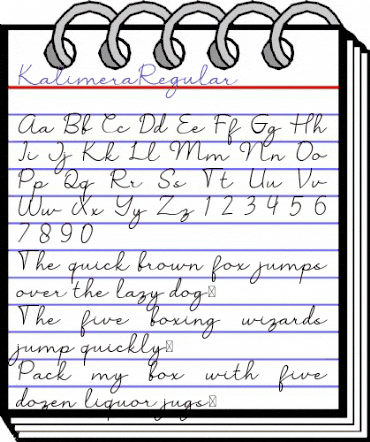 KalimeraRegular
Aa Bb Cc Dd Ee Ff Gg Hh
Ii Jj Kk Ll Mm Nn Oo
Pp Qq Rr Ss Tt Uu Vv
Ww Xx Yy Zz 1 2 3 4 5 6
7 8 9 0
The quick brown fox jumps
over the lazy dog□
The five boxing wizards
jump quickly□
Pack my box with five
dozen liquor jugs□